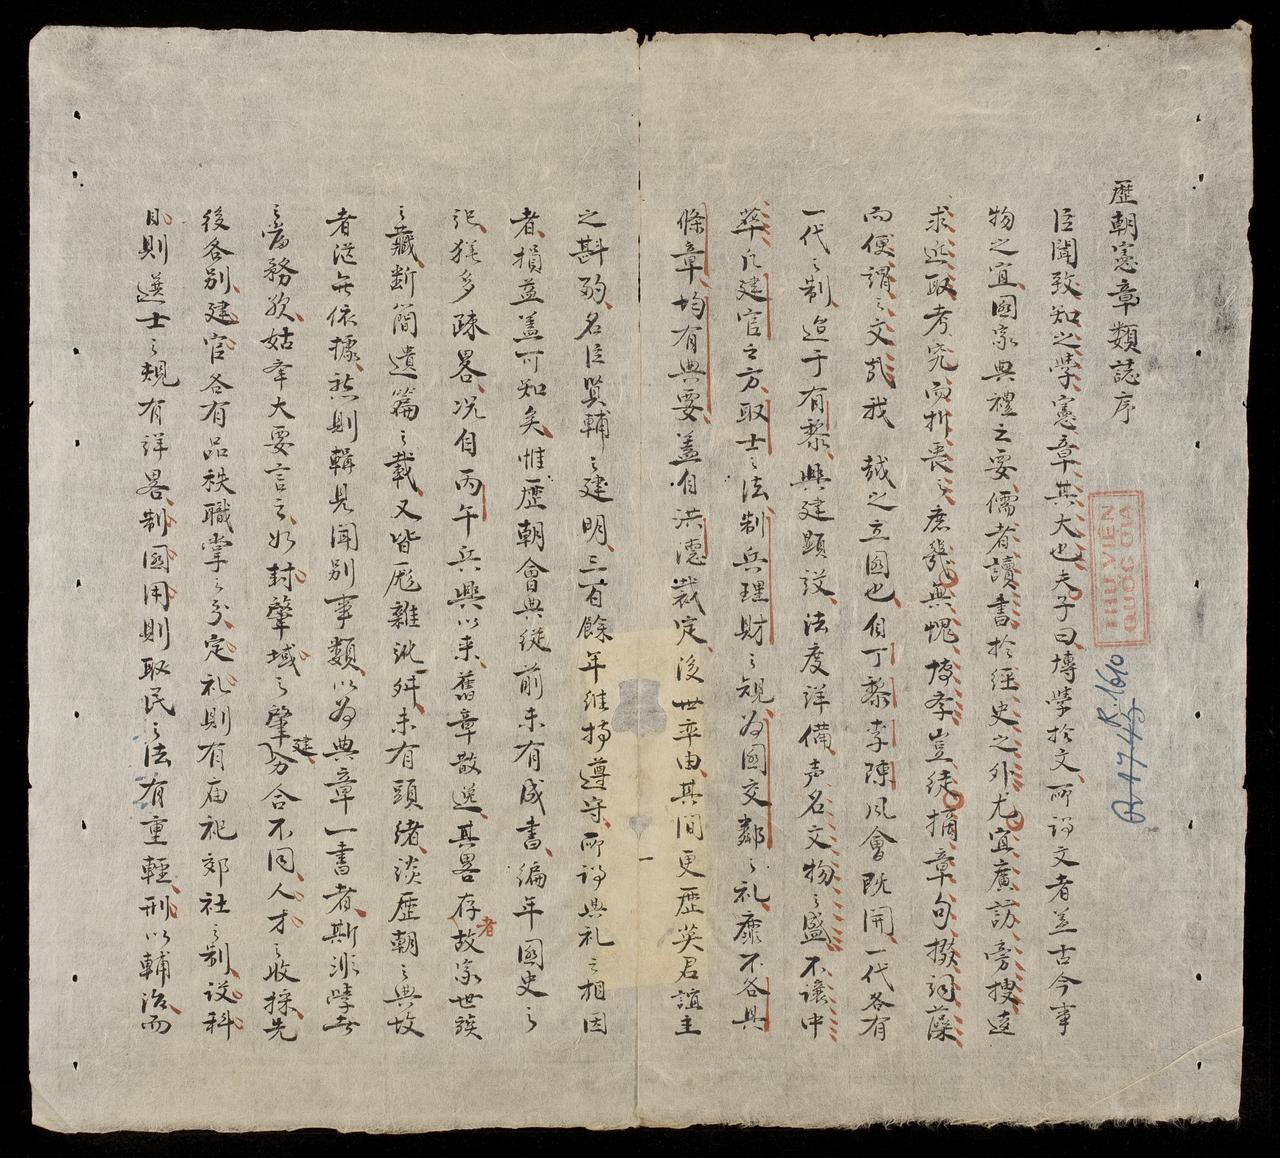 歷朝憲章類誌序
臣聞致知之學憲章其大也夫子曰博學於文所謂文者并古今事
物之宜國家典禮之要儒者讀書於經史之外尤宜廣訪旁搜遠
求近取考究而折衷之庶幾無愧博李豈徒摘章句掇詞藻
而便謂之文哉我 越之立國也自丁黎李陳風會既開一代各有
一代之制迨于有黎興建顯設法度詳備声名文物之盛不讓中
華凡建官之方取士之法制兵理財之規與國交鄰之礼靡不各具
條章均有典要蓋自洪德裁定後世率由其間更歷英君誼主
之斟酌名臣賢輔之建明三百餘年維持遵守所謂典礼之相因
者損益盖可知矣惟歷朝會典從前未有成書編年國史之
記猶多疎畧况自丙午兵興以来舊章散逸其畧存者故家世族
之藏断簡遺篇之載又皆厖雜訛舛未有頭緒談歷朝之典故
者茫無依據然則輯見聞別事類以為典章一書者斯非學者
之當務欤姑夲大要言之如封肇域之肇建分合不同人才之收採先
後各別建官各有品秩職掌之分定礼則有庙祀郊社之制設科
目則選士之規有詳畧制國用則取民之法有重輕刑以輔治而
一
THƯ VIỆN
QUỐC GIA
R.1610